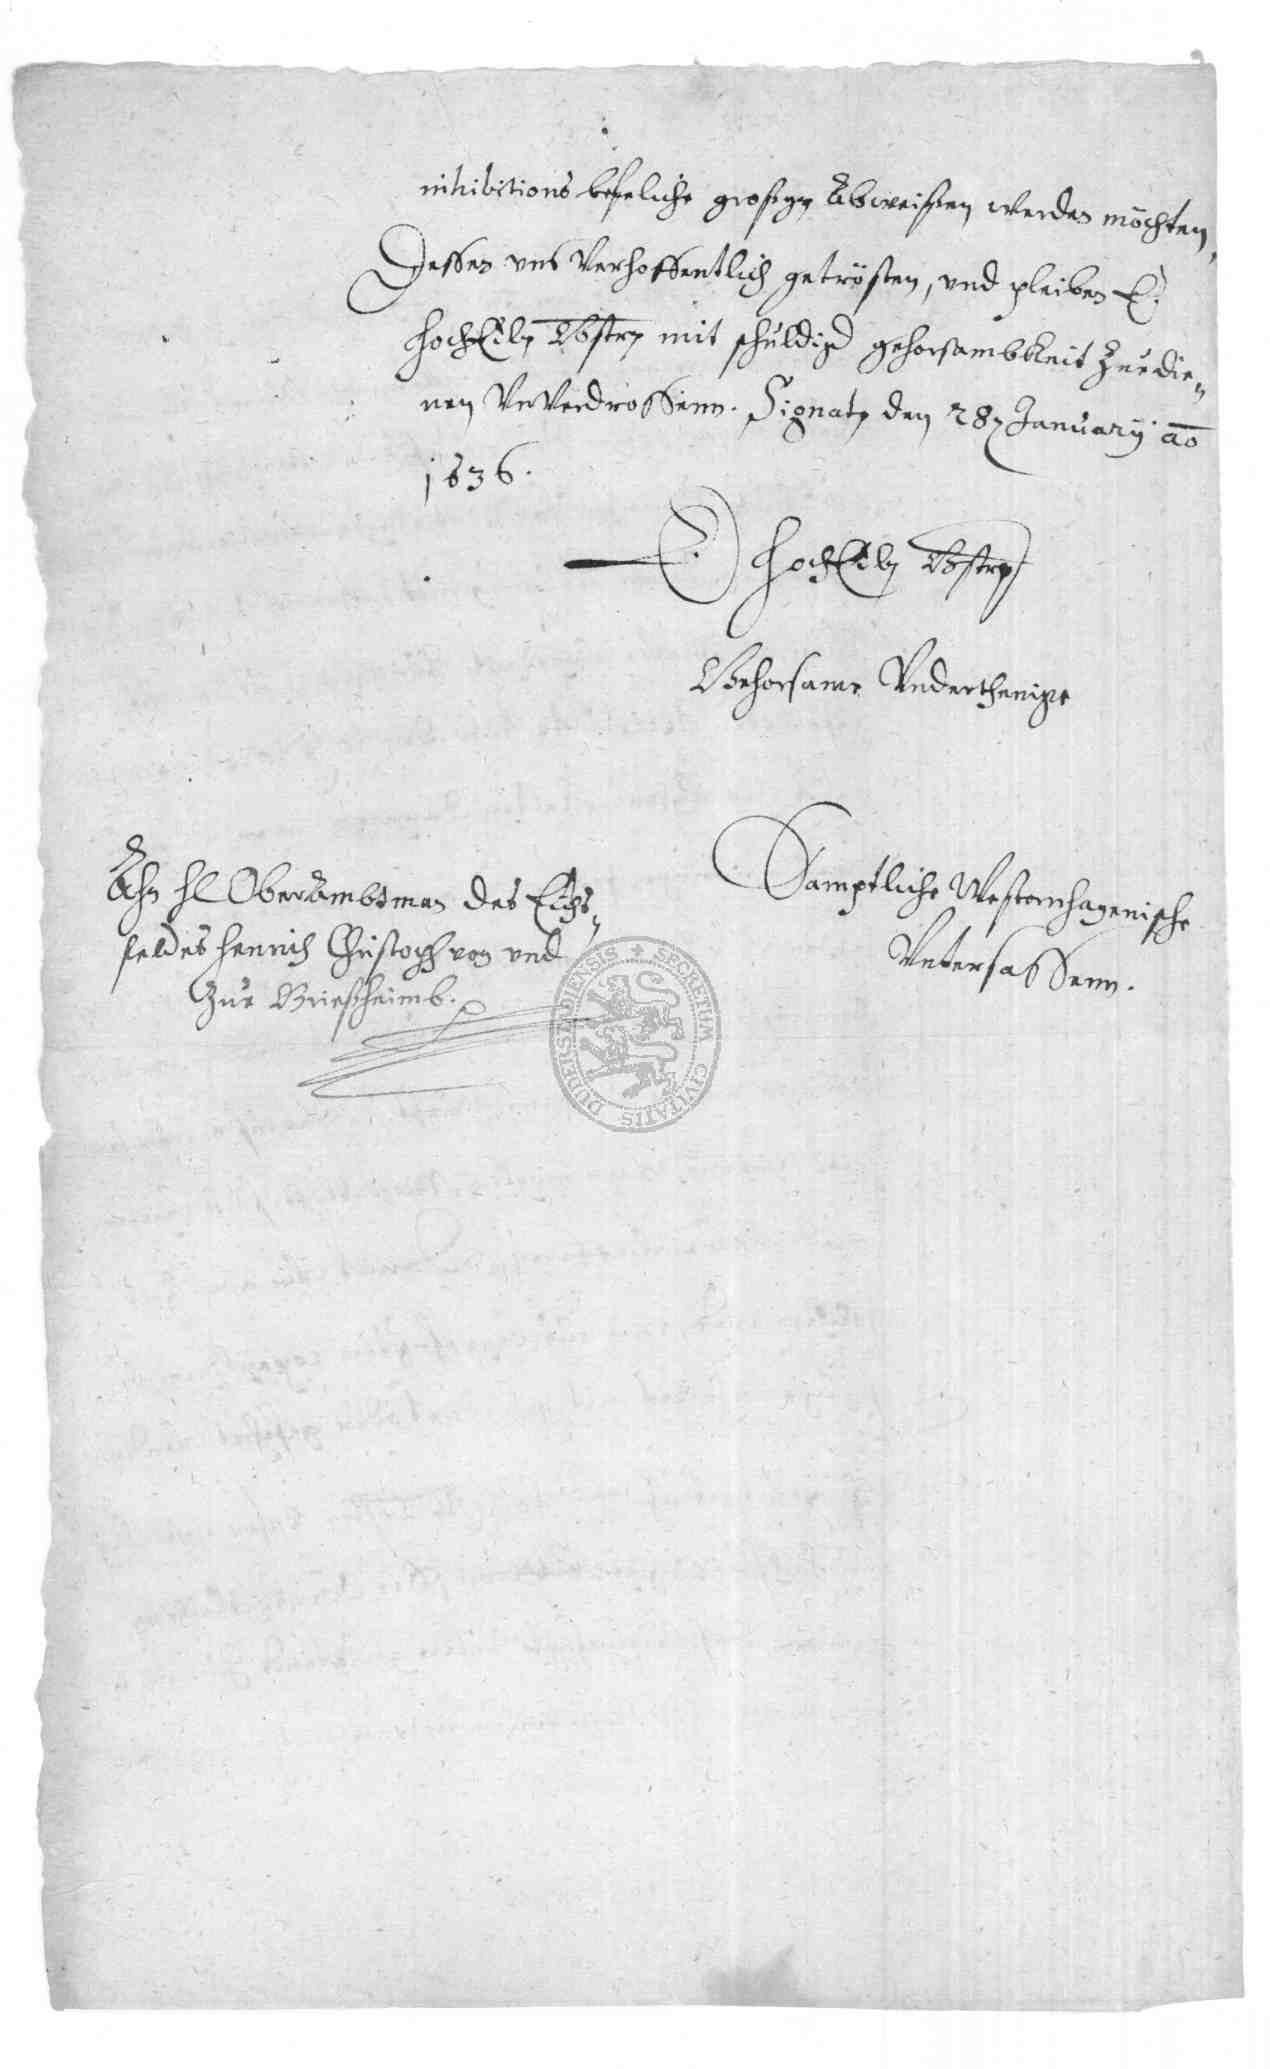 inhibitions befeliche großgn Abweißen werden möchten,
Dessen uns Verhoffentlich getrösten, und pleiben E.
HochEdlg Gstrg mit schuldigd gehorsambkeit Zue die-
nen UnVerdrossenn. Signatg den 28. January ao
1636.
E HochEdlg Gstrg
Gehorsame Underthenige
Samptliche Westernhagenische
Untersassenn.
Ahn Hl OberAmbtman des Eichs-
feldes Henrich Christoph von und
Zue Grießheimb.
SECRETUM CIVITATIS DUDERSTADIENSIS